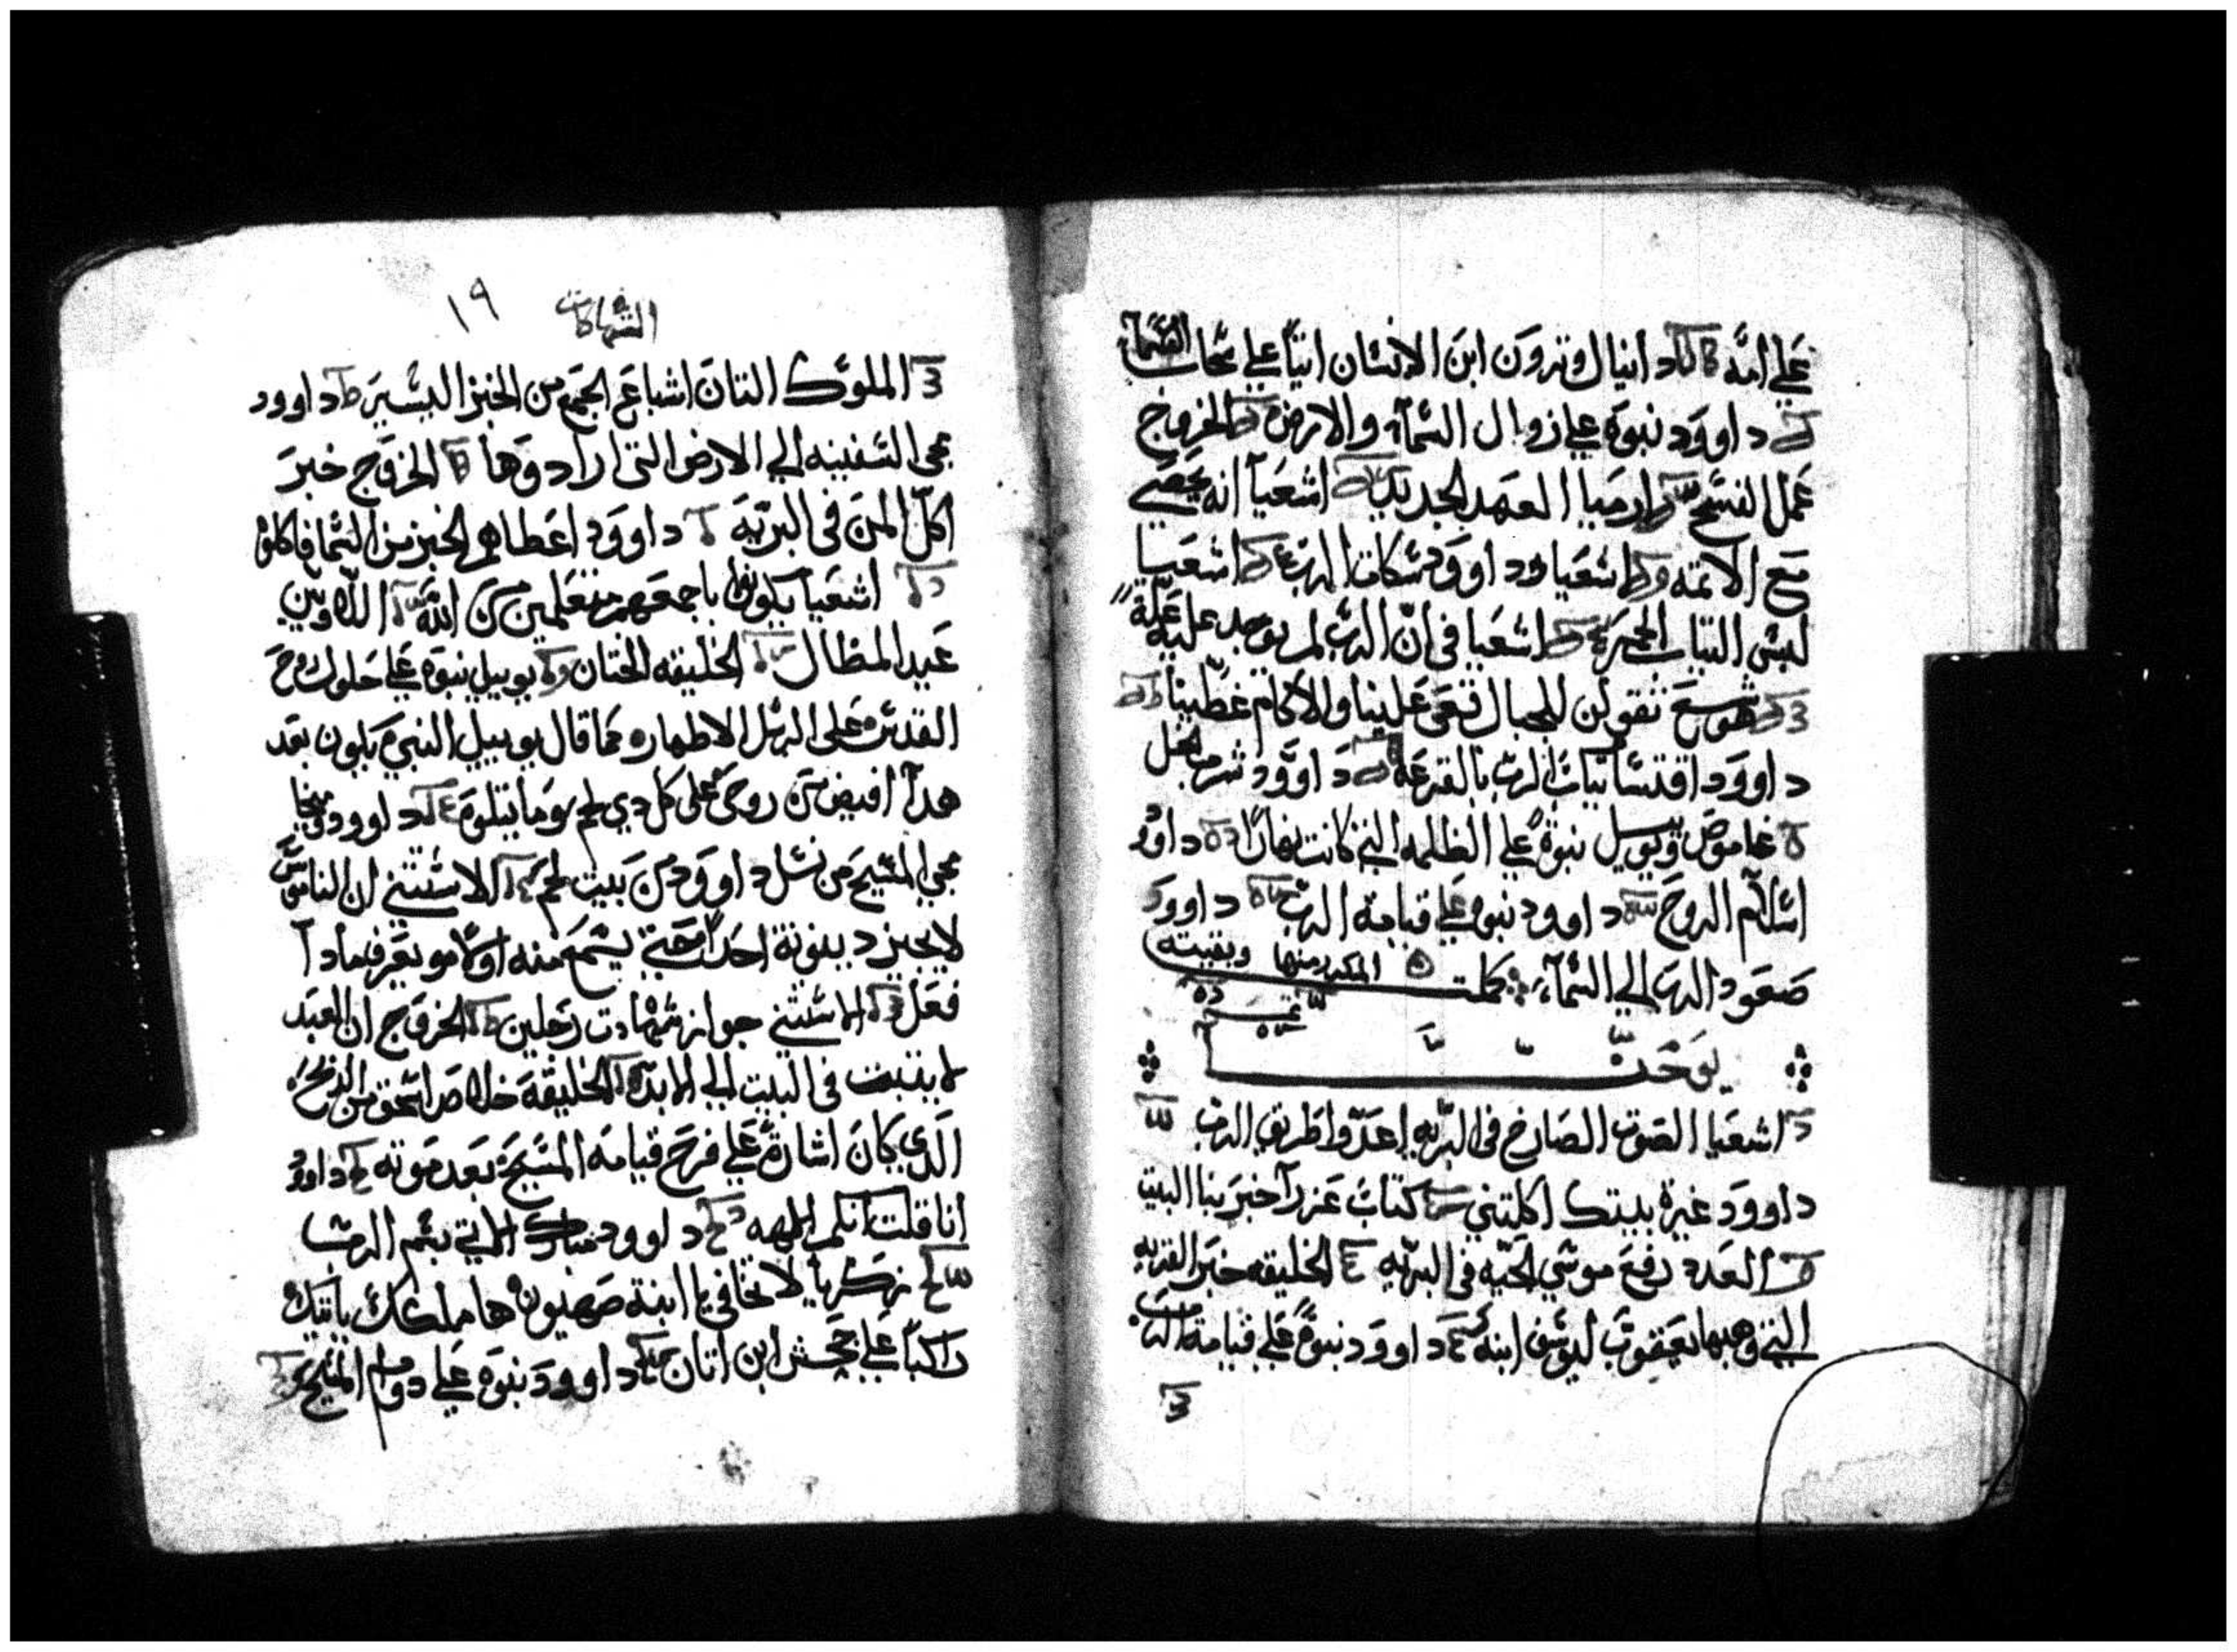 علي امه دانيال وترون ابن الانسان اتيا علي سحاب السما
داوود نبوة علي زوال السما والارض الخروج
عمل الفسح ارميا العهد الجديد اشعيا انه يحصي
مع الاثمه اشعيا داوود شكات الرب اشعيا
لبس التياب الحمر اشعيا في ان الرب لم يوجد عليه علة
هوسع تقولن للجبال قعي علينا والاكام غطينا
داوود اقتسا تياب الرب بالقرعة داوود شرب الخل
عاموص ويوييل نبوة علي الظلمه التي كانت نهارا داوود
اسلام الروح داوود نبوه علي قيامة الرب داوود
صعود الرب الي السما كملت
يوحنا
اشعيا الصوت الصارخ في البريه اعدوا طريق الرب
داوود غيرة بيتك اكلتني كتاب عزرا خبر بنا البيت
العدد رفع موسي الحيه في البريه الخليقه خبر القريه
التي وهبها يعقوب ليوسف ابنه داوود نبوة علي قيامة
الشهادات ١٩
الملوك التان اشباع الجمع من الخبز اليسير داوود
مجي السفينه الي الارض التي ارادوها الخروج خبر
اكل المن في البريه داوود اعطاهم الخبز من السما فاكلوا
اشعيا يكونوا باجمعهم متعلمين من الله اللاويين
عيد المظال الخليقه الختان يوييل نبوة علي حلول روح
القدس علي الرسل الاطهار كما قال يوييل النبي يكون بعد
هدا افيض من روحي علي كل دي لحم وما يتلوه داوود
مجي المسيح من نسل داوود من بيت لحم الاستتني ان الناموس
لا يجيز دينونة احدا حتي يسمع منه اولا ويعرف مادا
فعل الاستتني جواز شهادت رجلين الخروج ان العبد
لا يتبت في البيت الي الابد الخليقة خلاص اسحق من الدبح
الدي كان اشارة علي فرح قيامة المسيح بعد موته داوود
انا قلت انكم الهه داوود مبارك الاتي بسم الرب
زكريا لا تخافي يا ابنة صهيون ها ملكك ياتيك
راكبا علي جحش ابن اتان داوود نبوة علي دوام المسيح